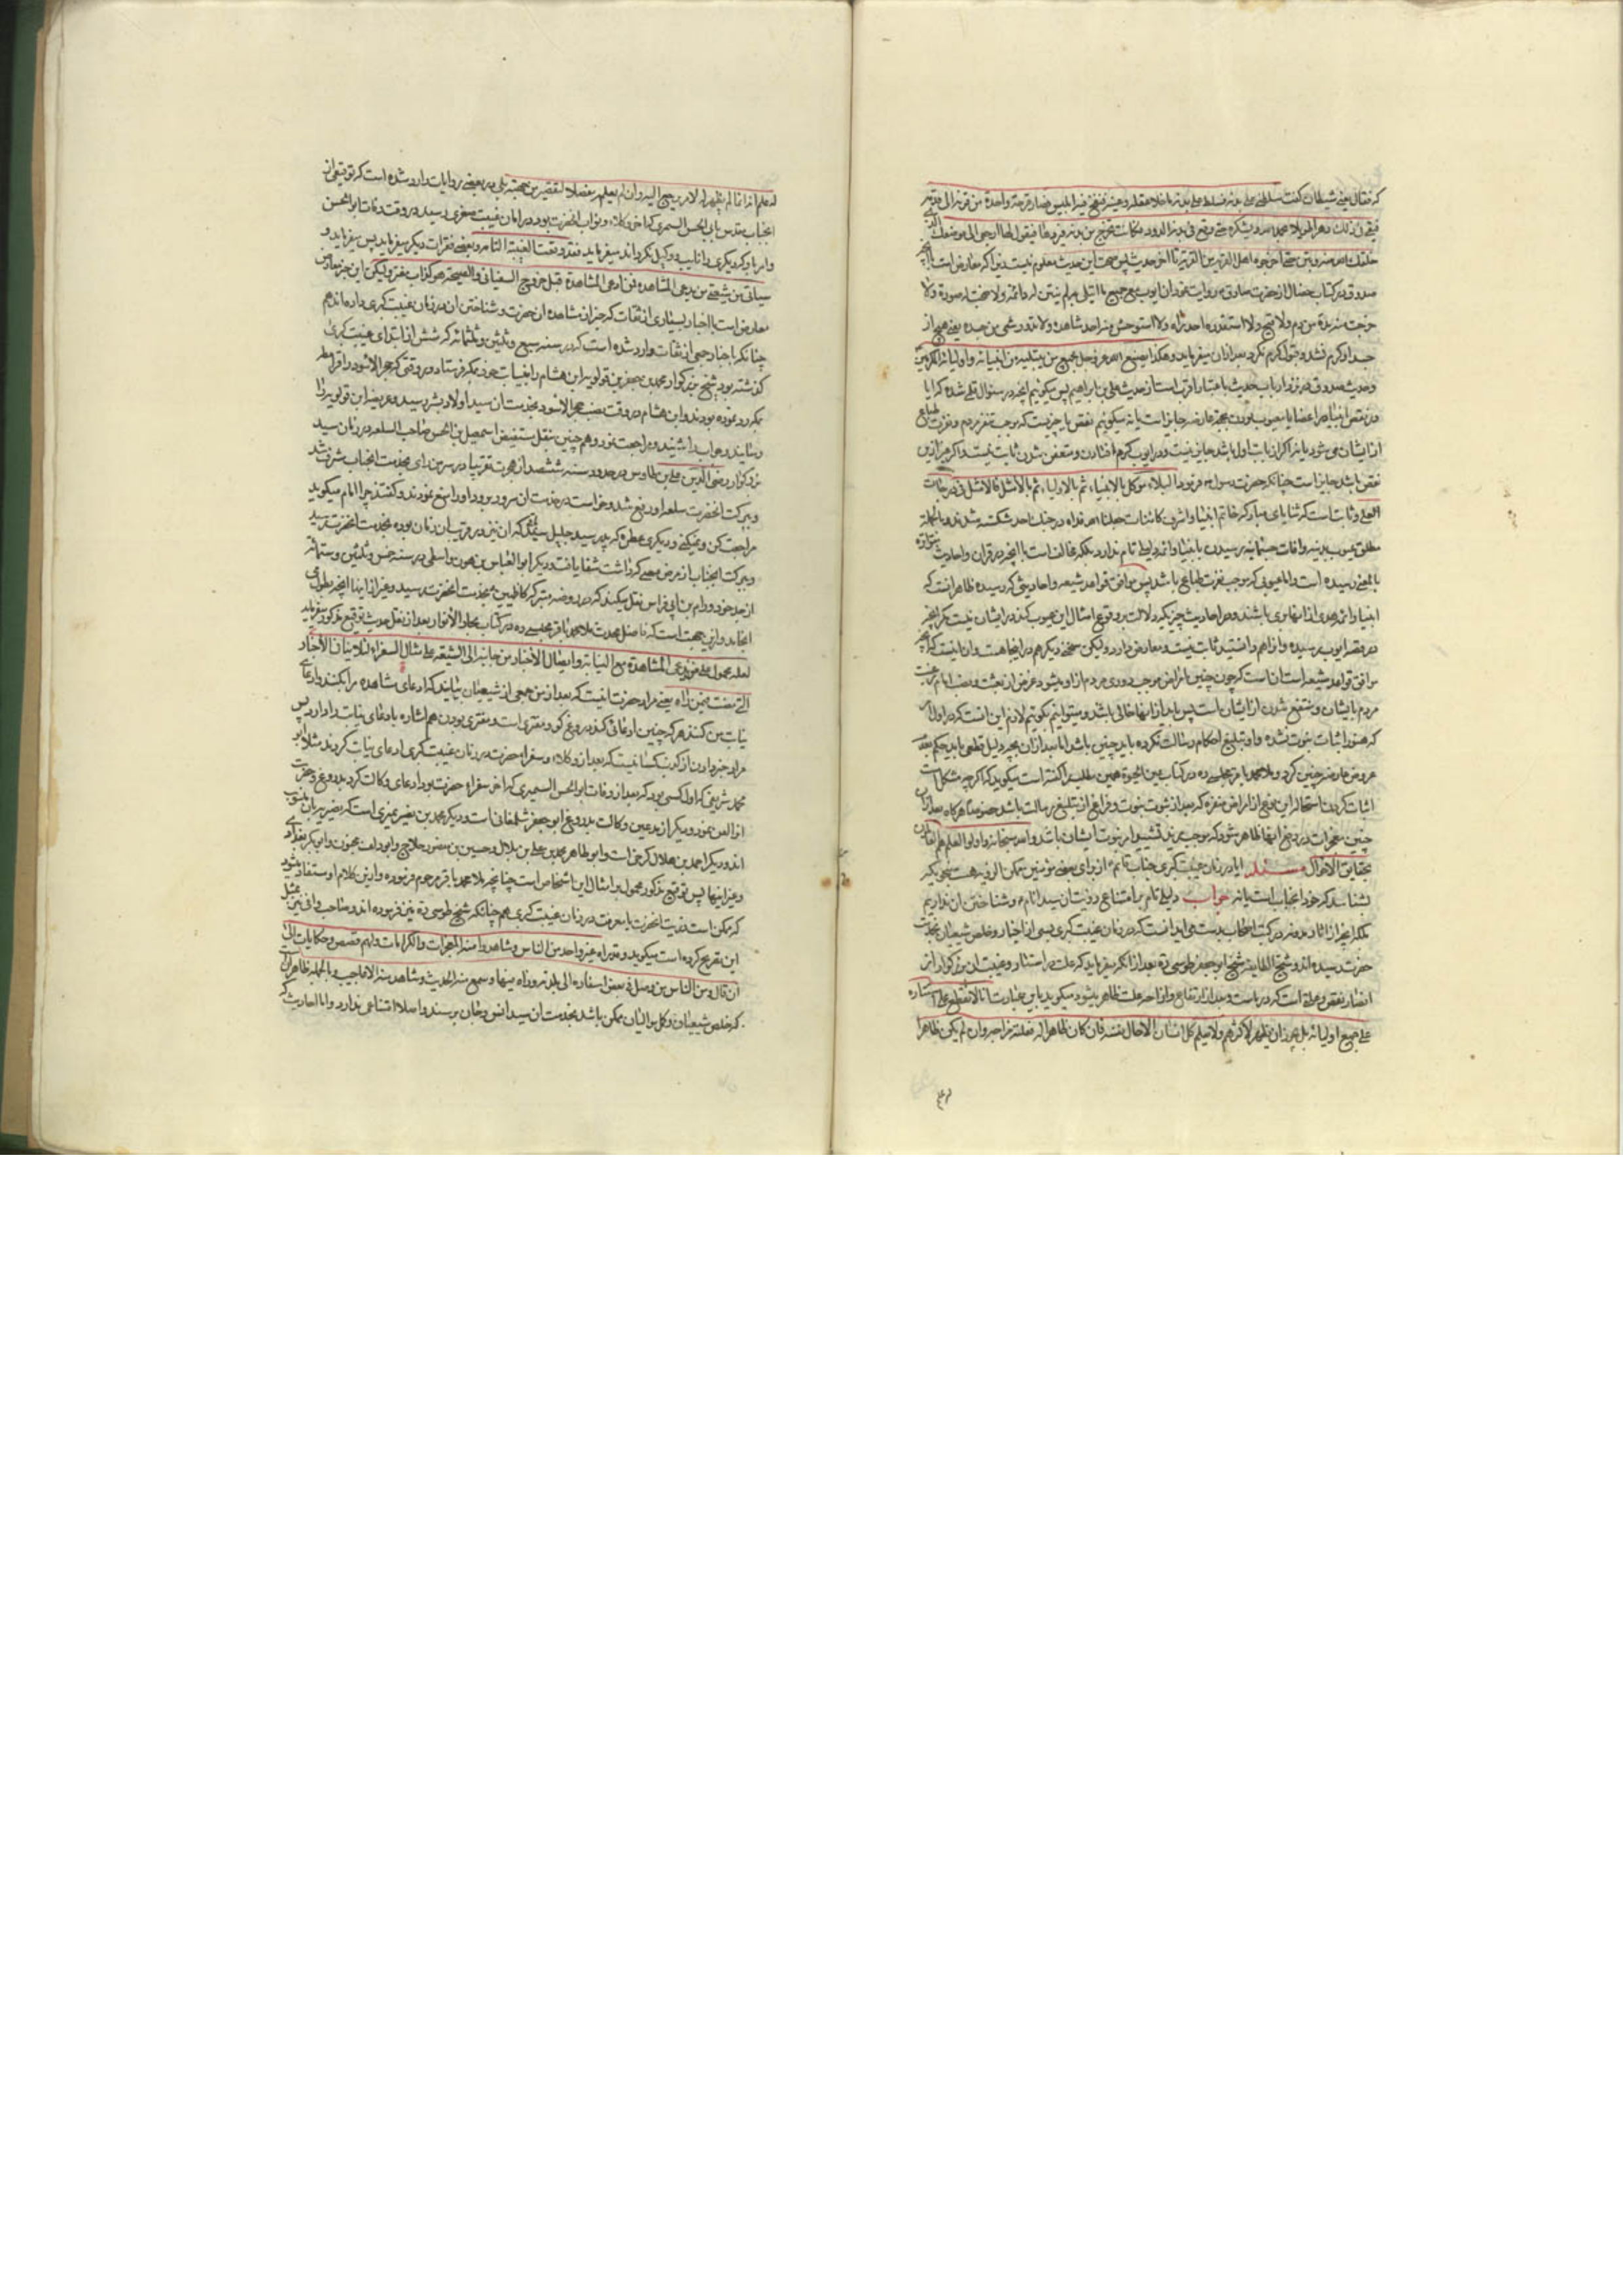 که فقال یعنی شیطان گفت سلطنی علی بدنه فسلطه علی بدنه ما خلا عقله و عینه فنفخ فیه ابلیس فصار قرحة واحدة من قرنه الی قدمه
فبقی فی ذلک دهرا طویلا یحمد الله و یشکره حتی وقع فی بدنه الدود و کانت تخرج من بدنه فیردها فیقول لها ارجعی الی موضعک الذی
خلقک الله منه و نتن حتی اخرجوه اهل القریة من القریة تا اخر حدیث پس صحت این حدیث معلوم نیست زیرا که معارض است با آنچه
صدوق در کتاب خصال از حضرت صادق روایت نموده ان ایوب مع جمیع ما ابتلی به لم ینتن له رائحة ولا قبحت له صورة ولا
خرجت منه مدة من دم ولا قیح ولا استقذره احد رآه ولا استوحش منه احد شاهده ولا تدود شیء من جسده یعنی هیچ از
جسد او کرم نشد و تولد کرم نکرد بعد از آن میفرماید و هکذا یصنع الله عز و جل بجمیع من یبتلیه من انبیائه و اولیائه المکرمین
و حدیث صدوق در نزد ارباب حدیث باعتبار اقرب است از حدیث علی بن ابراهیم پس میگوئیم آنچه در سئوال قلمی شده که آیا
در نقص انبیا در اعضا یا معیوب بودن بجهة عارضه جایز است یا نه میگوئیم نقص یا چیزیست که موجب تنفر مردم و نفرت طباع
از ایشان می شود یا نه اگر از باب اول باشد جایز نیست و در ایوب کرم افتادن و متعفن شدن ثابت نیست و اگر جز این
نقص باشد جایز است چنانکه حضرت رسول فرمود البلاء موکل بالانبیاء ثم بالاولیاء ثم بالامثل فالامثل فی درجات
العلی و ثابت است که ثنایای مبارکه خاتم انبیا و اشرف کائنات جعلنا الله فداه در جنک احد شکسته شد و بالجمله
مطلق عیوب بدنیه و آفات جسمانیه رسیدن بانبیا و ائمه دلیلی تام ندارد بلکه مخالف است با آنچه در قران و احادیث متواتره
بالمعنی رسیده است و اما عیوبی که موجب نفرت طباع باشد پس موافق قواعد شیعه و احادیثی که رسیده ظاهر آنست که
انبیا و ائمه هدی از اینها بری باشند و در احادیث چیزیکه دلالت بر وقوع امثال این عیوب کند در ایشان نیست مگر آنچه
در قصه ایوب رسیده و آنرا هم دانستید ثابت نیست و معارض دارد و لیکن سخنی دیگر هم در اینجا هست و ان اینست که آنچه
موافق قواعد شیعه است آن است که چون چنین امراض موجب دوری مردم از او میشود و غرض از بعثت و نصب امام رغبت
مردم بایشان و منتفع شدن از ایشان است پس باید از اینها خالی باشد و میتوانیم بگوئیم لازم این آنست که در اول
که هنوز اثبات نبوت نشده و او تبلیغ احکام رسالت نکرده باید چنین باشد اما بعد از ان بچه دلیل قطعی باید حکم بعدم
عروض عارضه چنین کرد و ملا محمد باقر مجلسی ره در کتاب عین الحیوة همین مطلب را گفته است میگوید که اگر چه مشکل است
اثبات کردن استحاله این نوع از امراض منفره که بعد از ثبوت نبوت و فراغ از تبلیغ رسالت باشد خصوصا هرگاه بعد از آن
چنین معجزات در دفع آنها ظاهر شود که موجب مزید تشیید امر نبوت ایشان باشد والله سبحانه و اولوا العلم هم العالمون
بحقایق الاحوال مسئله آیا در زمان غیبت کبری جناب قائم از برای بعضی مؤمنین ممکن الرؤیه هست بنحویکه
بشناسد که خود آنجناب است یا نه جواب دلیلی تام بر امتناع رؤیت آن سید انام و شناختن آن نداریم
بلکه آنچه از آثار معروضه در کتب اصحاب بدست می آید آنست که در زمان غیبت کبری بسی از اخیار و خلص شیعیان بخدمت
حضرت رسیده اند و شیخ الطایفه شیخ ابو جعفر طوسی ره بعد از آنکه میفرماید که علت در استتار و غیبت ان بزرگوار از
انظار نقص و علة است که در ماست و بعد از ارتفاع و ازاحه علت ظاهر میشود میگوید باین عبارت انا لا نقطع علی استتاره
علی جمیع اولیائه بل یجوز ان یظهر لاکثرهم ولا یعلم کل انسان الا حال نفسه فان کان ظاهرا له فعلته مزاحة و ان لم یکن ظاهرا
له علم انه انما لم یظهر له لامر یرجع الیه و ان لم یعلمه مفصلا لتقصیر من جهته بلی در بعضی روایات وارد شده است که توقیعی از
آنجناب مقدس بابی الحسن السمری که آخر وکلاء و نواب آنحضرت بود در زمان غیبت صغری رسید در وقت وفات ابوالحسن
و امر باو که دیگری را نایب و وکیل نگرداند میفرماید فقد وقعت الغیبة التامة و بعضی فقرات دیگر میفرماید پس میفرماید و
سیأتی من شیعتی من یدعی المشاهدة فمن ادعی المشاهدة قبل خروج السفیانی و الصیحة فهو کذاب مفتر و لیکن این خبر معارض
معارض است با اخبار بسیاری از ثقات که خبر از مشاهده ان حضرت و شناختن ان در زمان غیبت کبری داده اند هم
چنانکه باخبار جمعی از ثقات وارد شده است که در سنه سبع و ثلثین و ثلثمائه که شش از ابتدای غیبت کبری
گذشته بود شیخ بزرگوار محمد بن جعفر بن قولویه ابن هشام را بنیابت خود بمکه فرستاد در وقتی که حجر الاسود را قرامطه
بمکه رد نموده بودند و ابن هشام در وقت نصب حجر الاسود بخدمت ان سید اولاد بشر رسید و عریضه ابن قولویه را
رسانید و جواب را شنید و مراجعت نمود و هم چنین بنقل مستفیض اسمعیل بن الحسن صاحب السلعه در زمان سید
بزرگوار رضی الدین علی بن طاوس در حدود سنه ششصد از هجرت تقریبا در سر من رای بخدمت آنجناب مشرف شد
و ببرکت آنحضرت سلعه او رفع شد و خواست در خدمت آن سرور برود او را منع نمودند و گفتند چرا امام میگوید
مراجعت کن و نمیکنی و دیگری عطوه که پدر سید جلیل است که ان نیز در قرب آن زمان بوده بخدمت آنحضرت رسید
و ببرکت آنجناب از مرض صعبی که داشت شفا یافت و دیگر ابوالعباس بن هرون واسطی در سنه خمس و ثلثین و ستمائه
از جد خود ورام بن ابی فراس نقل میکند که در روضه متبرکه کاظمیین بخدمت آنحضرت رسید و غیر از اینها آنچه بطول می
انجامد و از این جهت است که فاضل محدث ملا محمد باقر مجلسی ره در کتاب بحار الأنوار بعد از نقل حدیث توقیع مذکور میفرماید
لعله محمول علی من یدعی المشاهدة مع النیابة و ایصال الأخبار من جانبه الی الشیعة علی مثال السفراء لئلا ینافی الأخبار
التی مضت فیمن رآه یعنی مراد حضرت اینست که بعد از من جمعی از شیعیان بیایند که ادعای مشاهده مرا بکنند و ادعای
نیابت من کنند هر که چنین ادعائی کند دروغ گو و مفتری است و مفتری بودن هم اشاره بادعای نیابت و اراد پس
مراد خبر دادن از کذب کسانیست که بعد از وکلاء و سفراء حضرت در زمان غیبت کبری ادعای نیابت کردند مثل ابو
محمد شریعی که اول کسی بود که بعد از وفات ابوالحسن السمیری که آخر سفراء حضرت بود ادعای وکالت کرد بدروغ و حضرت
او را لعن نمود و دیگر از مدعین وکالت بدروغ ابو جعفر شلمغانی است و دیگر محمد بن نصیر نمیری است که نصیریه بآن منسوب
اند و دیگر احمد بن هلال کرخی است و ابو طاهر محمد بن علی بن بلال و حسین بن منصور حلاج و ابو دلف مجنون و ابوبکر بغدادی
و غیر اینها پس توقیع مذکور محمول بر امثال این اشخاص است چنانچه ملا محمد باقر مرحوم فرموده و از این کلام او مستفاد میشود
که ممکن است رؤیت آنحضرت با معرفت در زمان غیبت کبری هم چنانکه شیخ طوسی ره نیز فرموده اند و صاحب وافی نیز بمثل
این تصریح کرده است میگوید و قد رآه غیر واحد من الناس و شاهدوا منه المعجزات و الکرامات و لهم قصص و حکایات الی
ان قال و من الناس من وصل فی بعض اسفاره الی بلدته و رآه فیها و سمع منه الحدیث و شاهد منه الاعاجیب و بالجمله ظاهر این است
که خلص شیعیان و کمل موالیان ممکن باشد بخدمت ان سید انس و جان برسند و اصلا امتناعی ندارد و اما احادیث که